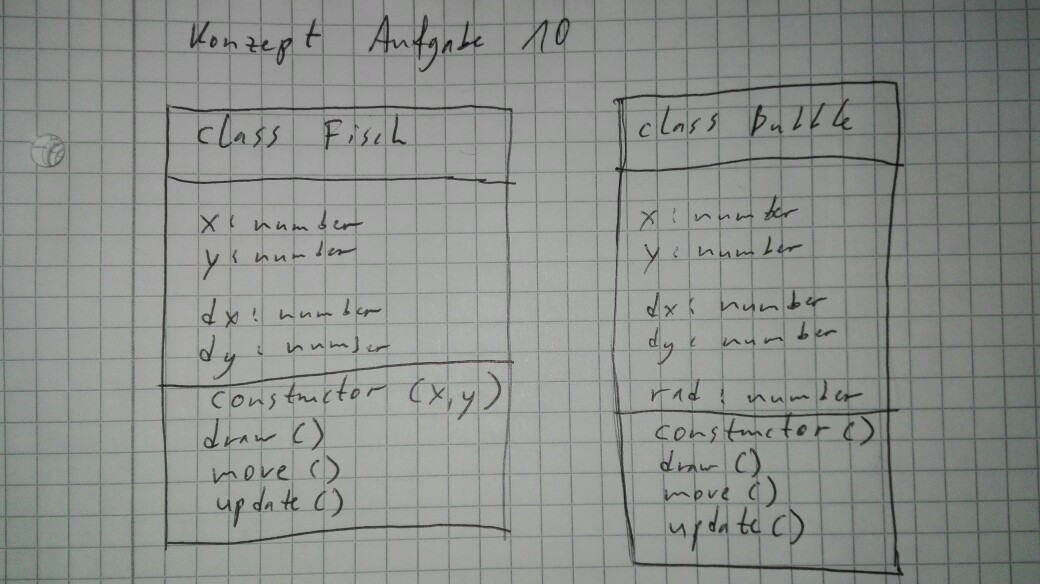 Konzept Aufgabe 10
class Fisch
x : number
y : number
dx : number
dy : number
constructor (x,y)
draw ()
move ()
update ()
class Bubble
x : number
y : number
dx : number
dy : number
rad : number
constructor ()
draw ()
move ()
update ()